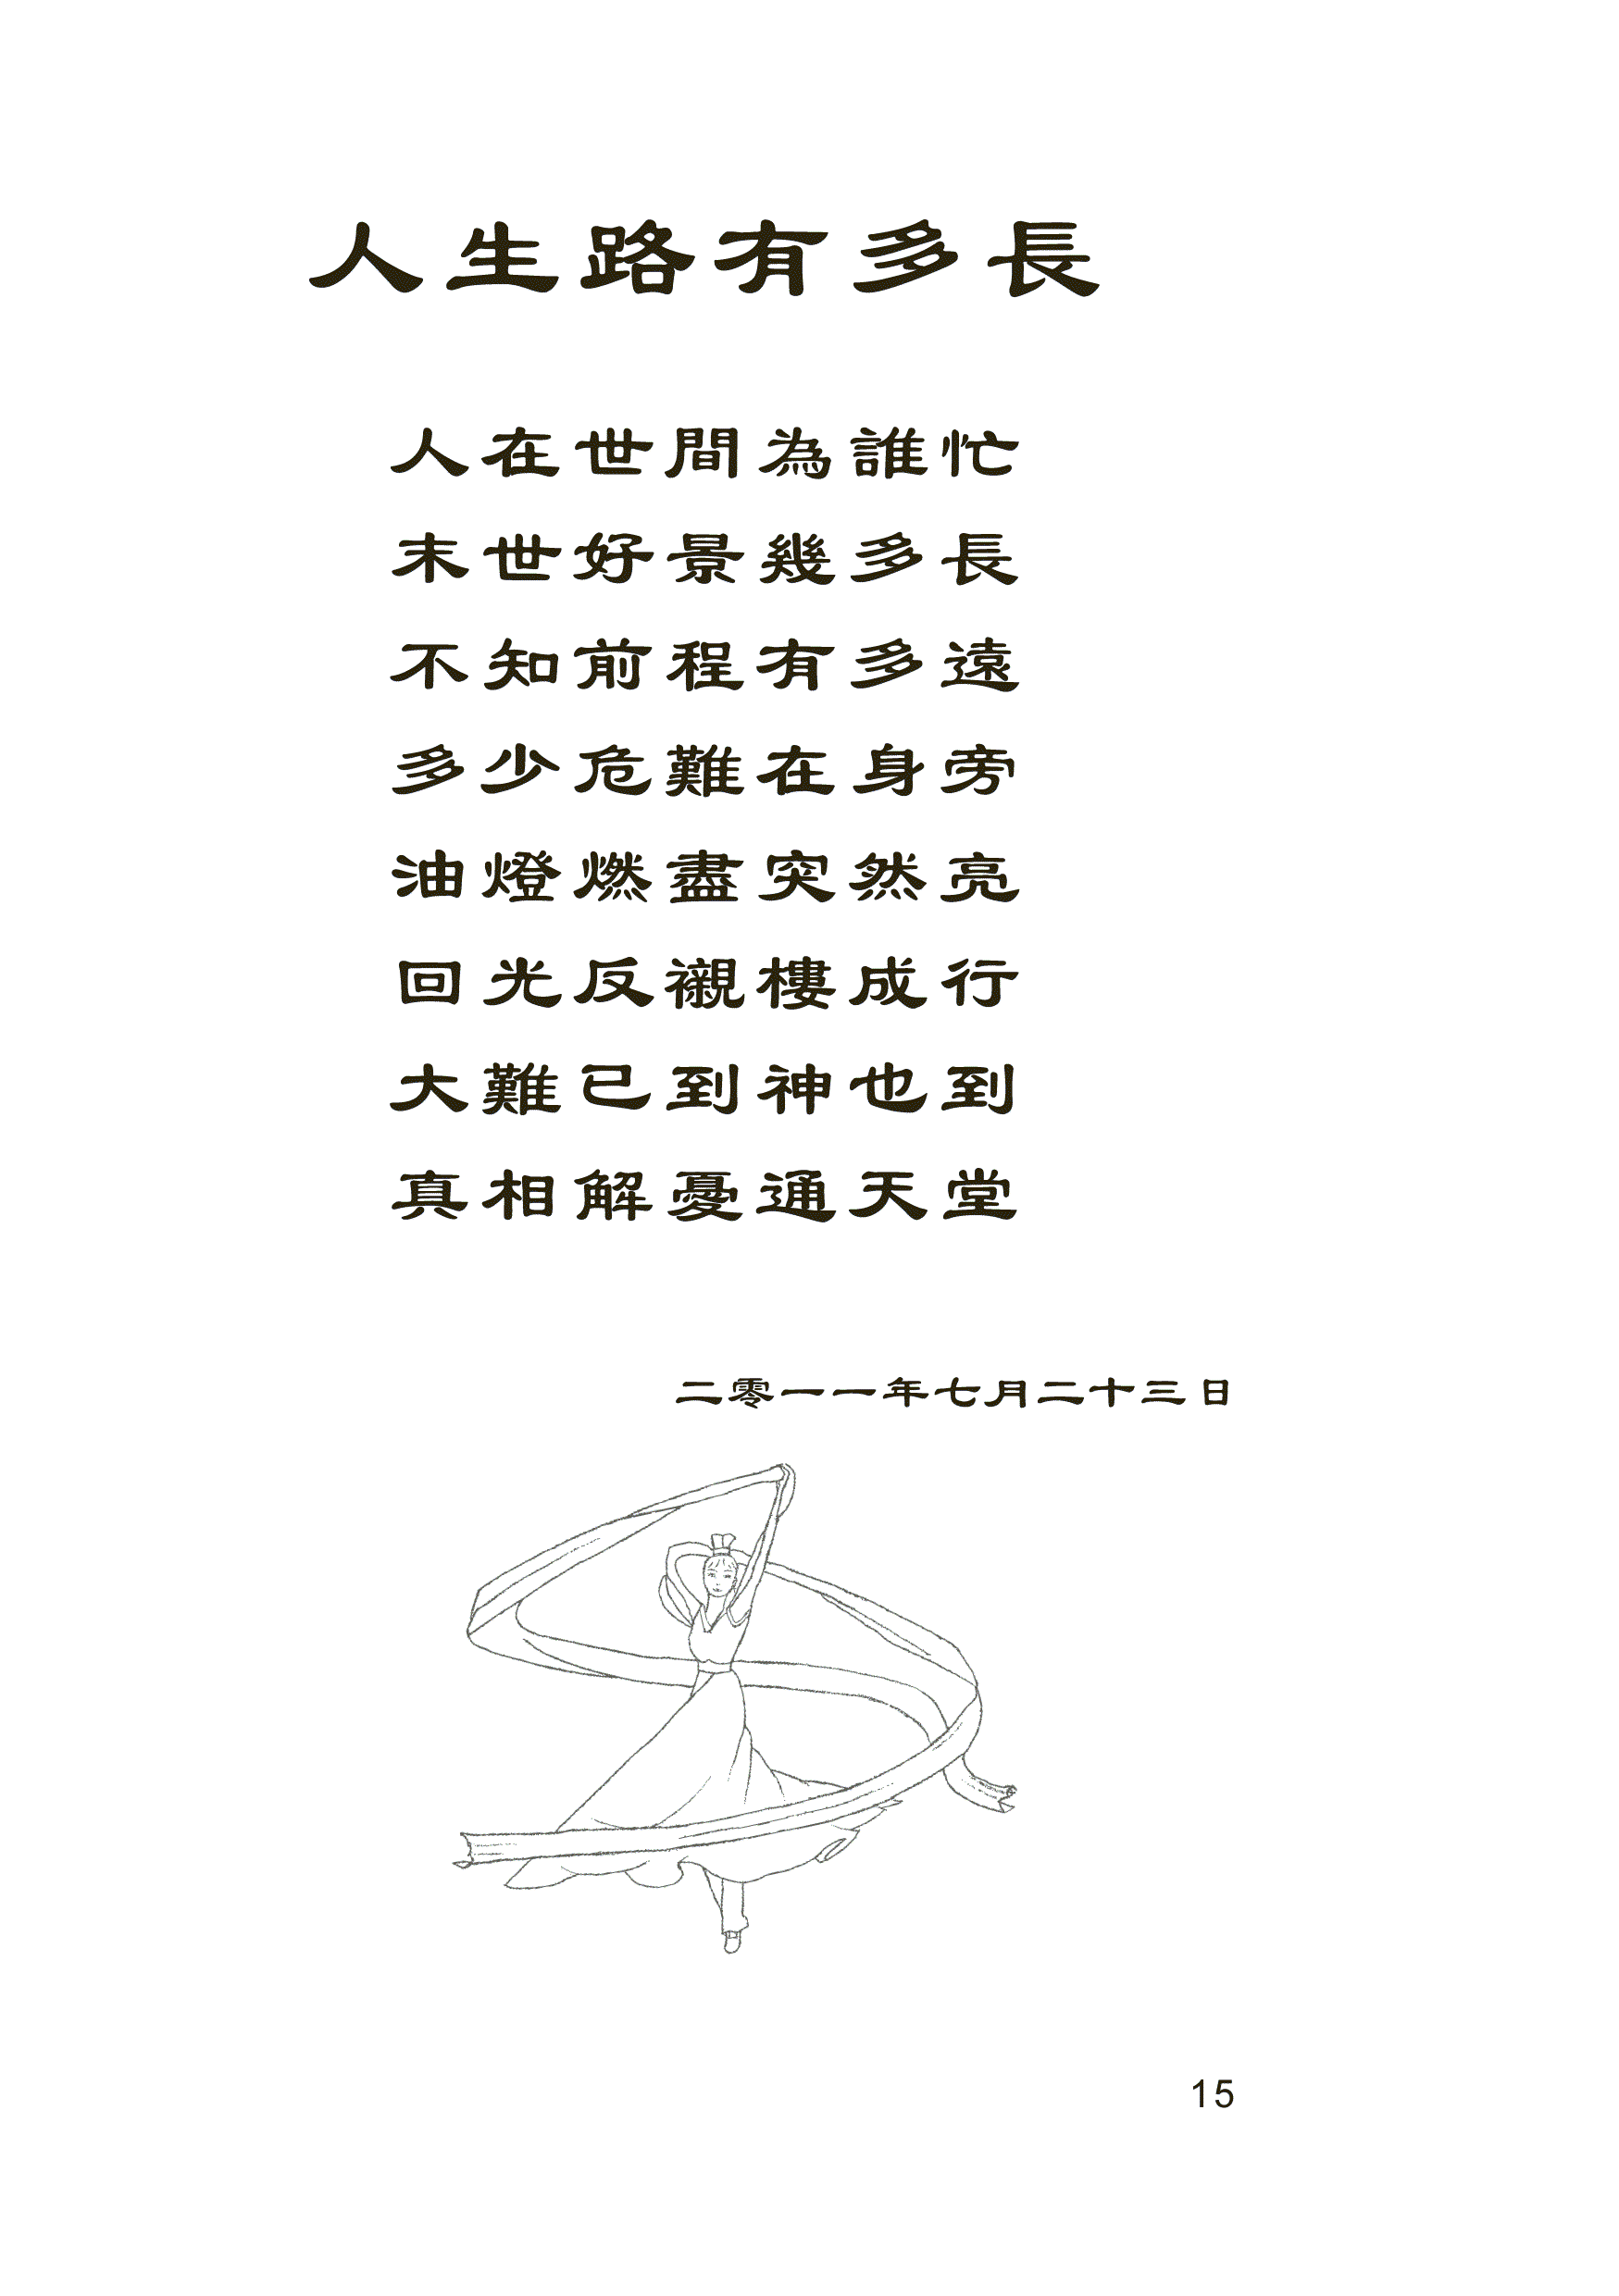 人生路有多長
人在世間為誰忙
末世好景幾多長
不知前程有多遠
多少危難在身旁
油燈燃盡突然亮
回光反襯樓成行
大難已到神也到
真相解憂通天堂
二零一一年七月二十三日
15